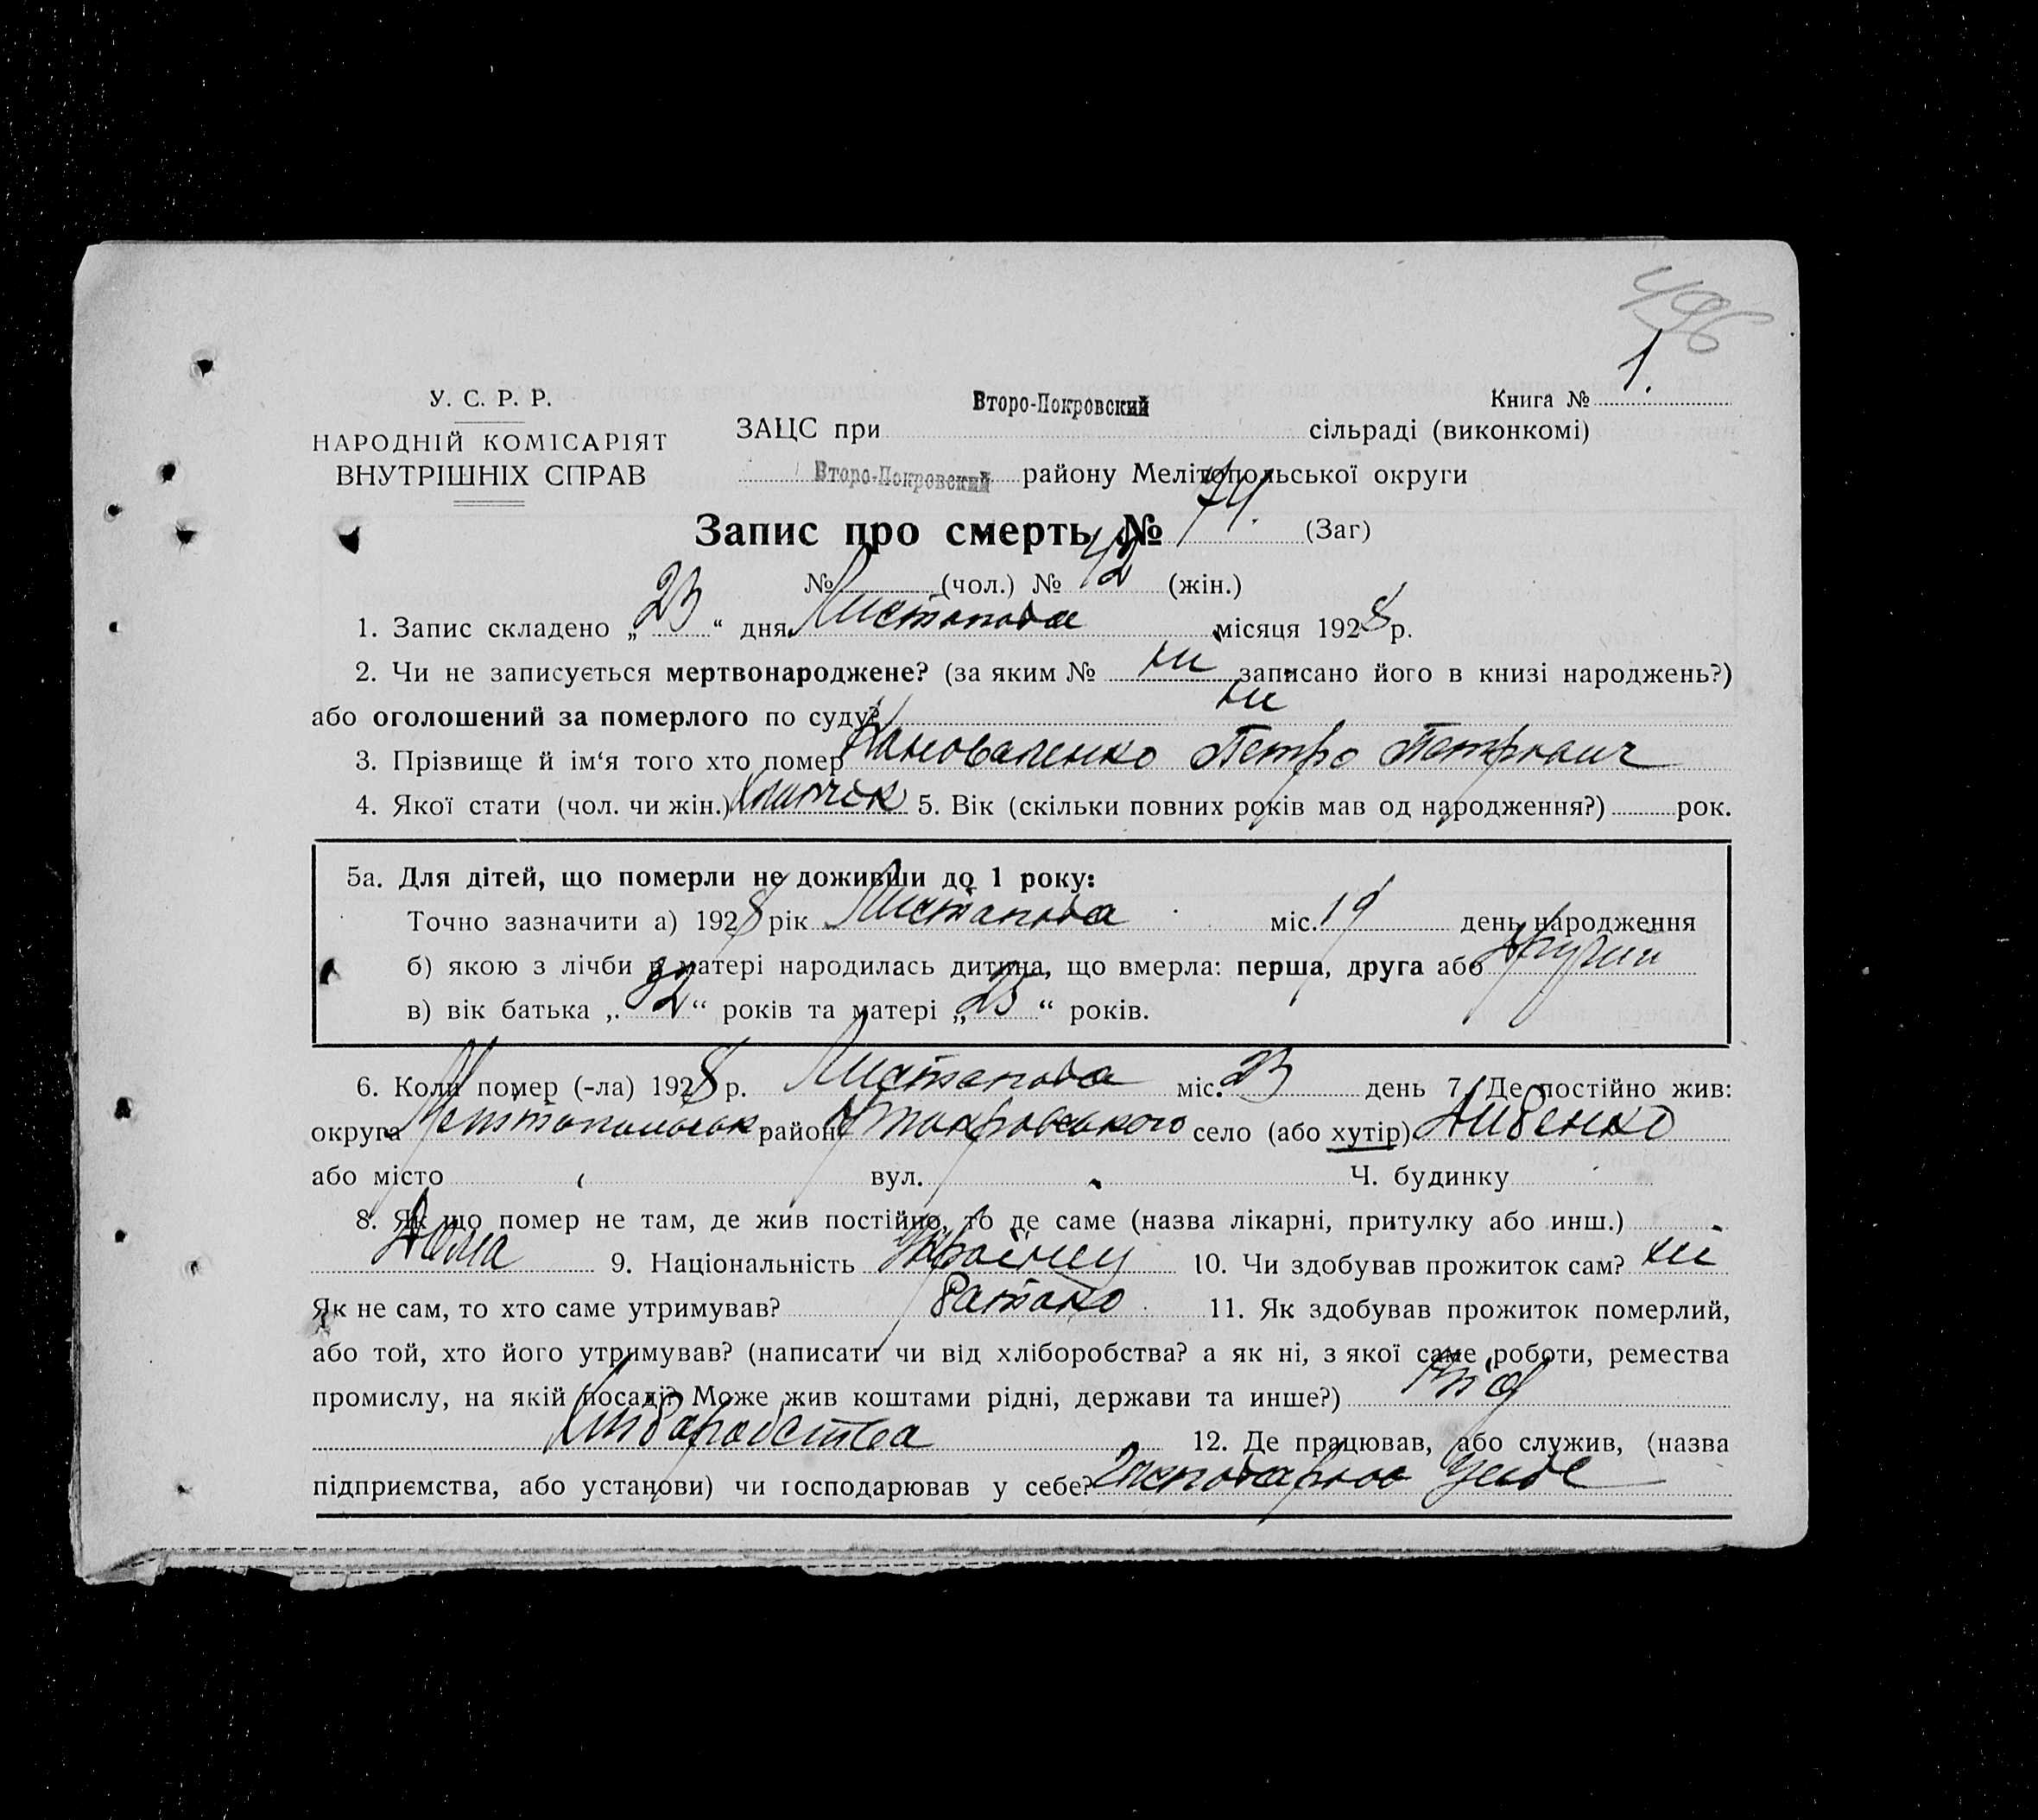 496
1.
У. С. Р. Р.
НАРОДНІЙ КОМІСАРІЯТ
ВНУТРІШНІХ СПРАВ
Книга №
Второ-Покровский
ЗАЦС при сільраді (виконкомі)
Второ-Покровский району Мелітопольської округи
Запис про смерть № 74. (Заг)
№ (чол.) № 42 (жін.)
1. Запис складено „23“ дня Листопада місяця 1928 р.
2. Чи не записується мертвонароджене? (за яким № ни записано його в книзі народжень?)
або оголошений за померлого по суду? ни
3. Прізвище й ім‘я того хто помер Коноваленко Петро Петрович
4. Якої стати (чол. чи жін.) 5. Вік (скільки повних років мав од народження?) рок.
5а. Для дітей, що померли не доживши до 1 року:
Точно зазначити а) 1928 рік Листопада міс. 19 день народження
б) якою з лічби в матері народилась дитина, що вмерла: перша, друга або другий
в) вік батька „32“ років та матері „25“ років.
6. Коли помер (-ла) 1928 р. Листопада міс. 23 день 7. Де постійно жив:
округа район село (або хутір) Дибенко
або місто вул. Ч. будинку
8. Як що помер не там, де жив постійно, то де саме (назва лікарні, притулку або инш.)
Дома 9. Національність Україnец 10. Чи здобував прожиток сам? ни
Як не сам, то хто саме утримував? Батько 11. Як здобував прожиток померлий,
або той, хто його утримував? (написати чи від хліборобства? а як ні, з якої саме роботи, ремества
промислу, на якій посаді? Може жив коштами рідні, держави та инше?) від
хліборобства 12. Де працював, або служив, (назва
підприємства, або установи) чи господарював у себе? Господарював у себе